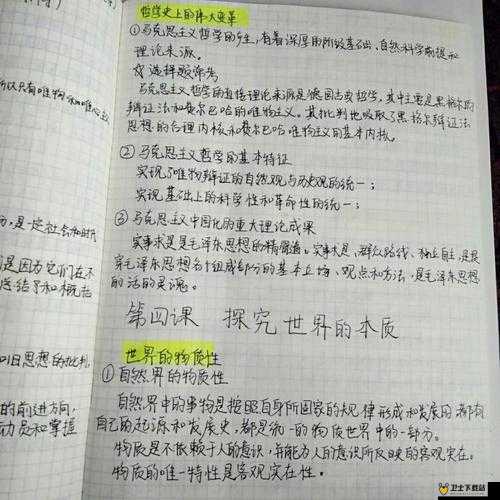 所以只有唯物和唯心
是一定社会和时代
是因为它们在不
总结了和概括
旧思想的批判
的前进方向,
动员和掌握
哲学史上的伟大变革
①马克思主义哲学的产生,有着深厚的阶级基础,自然科学前提和
理论来源。
☆选择题常考
马克思主义哲学的直接理论来源是德国古典哲学,其中主要是黑格尔的
辩证法和费尔巴哈的唯物主义。其批判地吸取了黑格尔辩证法
思想的合理内核和费尔巴哈唯物主义的基本内核。
②马克思主义哲学的基本特征
实现了唯物辩证的自然观与历史观的统一;
实现基础上的科学性和革命性的统一;
③马克思主义中国化的重大理论成果
实事求是是毛泽东思想的精髓。实事求是,群众路线、独立自主,是贯
穿毛泽东思想各个组成部分的基本立场、观点和方法,是毛泽东思想
的活的灵魂。
第四课 探究世界的本质
世界的物质性
①自然界的物质性
自然界中的事物是按照自身所固有的规律形成和发展的,都有
自己的起源和发展史,都是统一的物质世界中的一部分。
物质是不依赖于人的意识,并能为人的意识所反映的客观实在。
物质的唯一特性是客观实在性。
卫士下载站